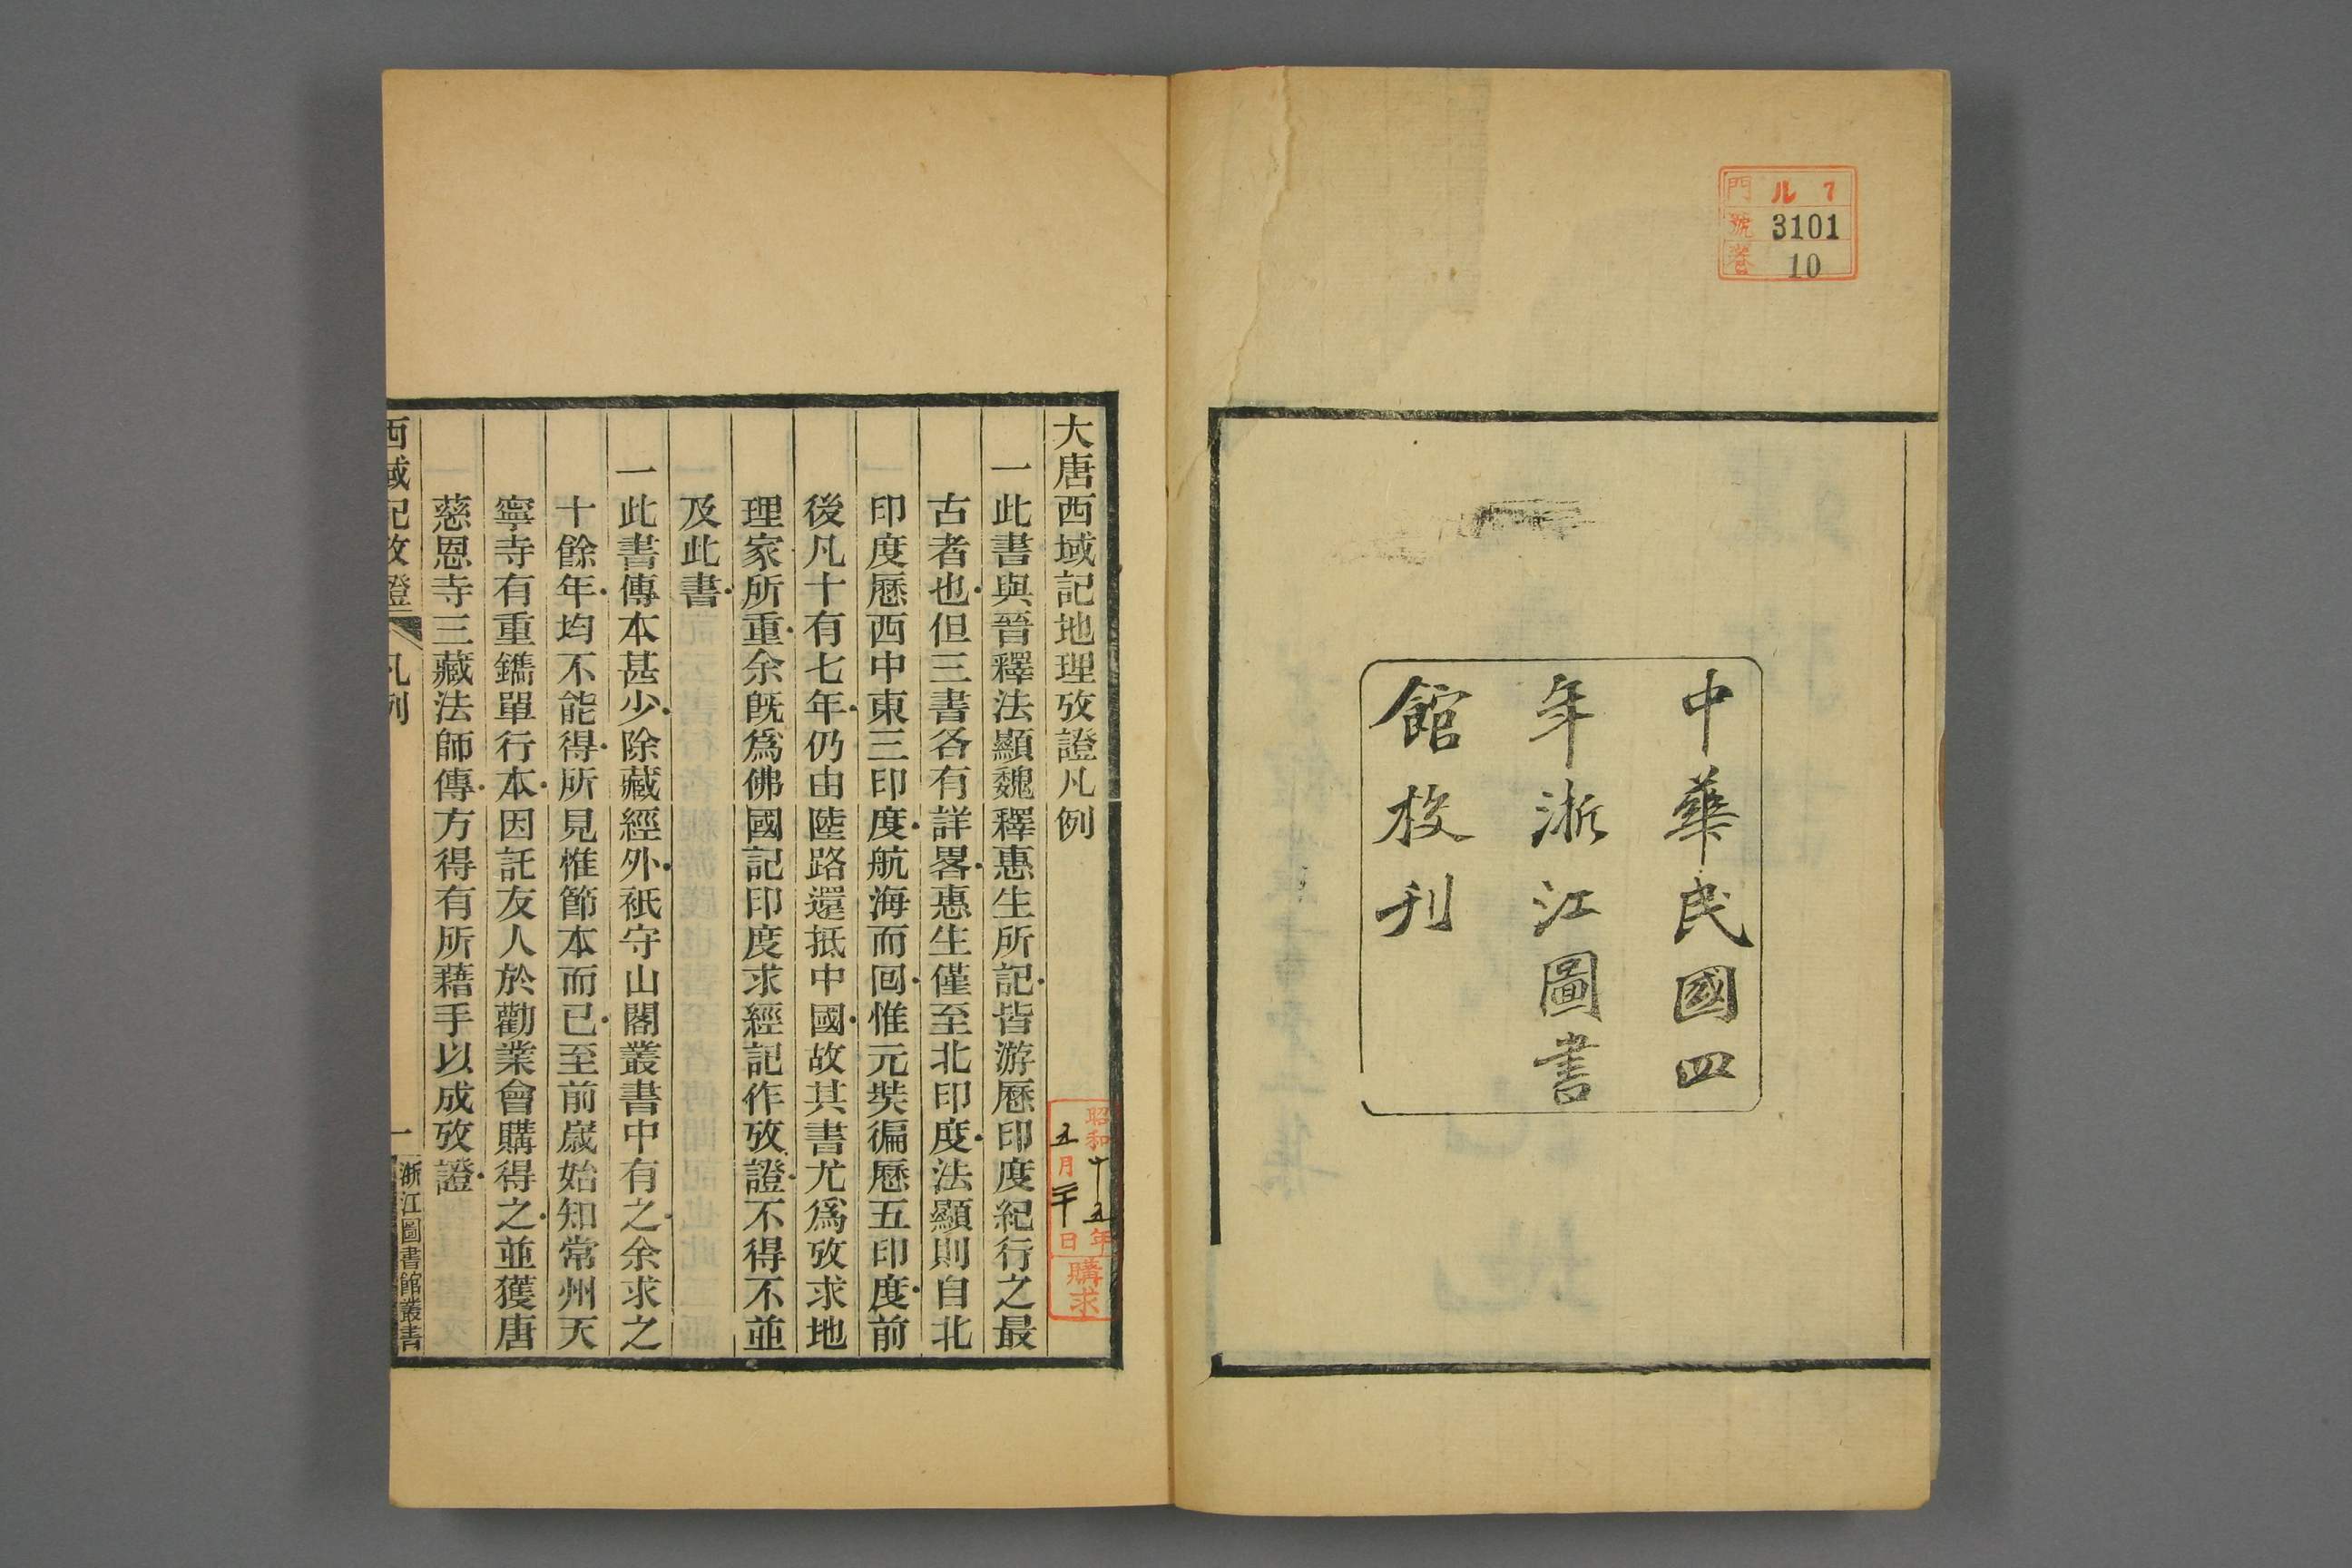 門 ル 7
號 3101
卷 10
中華民國四
年浙江圖書
館校刊
大唐西域記地理攷證凡例
昭和十五年
五月二十日
購求
一此書與晉釋法顯魏釋惠生所記皆游歷印度紀行之最
古者也但三書各有詳畧惠生僅至北印度法顯則自北
印度歷西中東三印度航海而回惟元奘徧歷五印度前
後凡十有七年仍由陸路還抵中國故其書尤爲攷求地
理家所重余旣爲佛國記印度求經記作攷證不得不並
及此書
一此書傳本甚少除藏經外祇守山閣叢書中有之余求之
十餘年均不能得所見惟節本而已至前歲始知常州天
寧寺有重鐫單行本因託友人於勸業會購得之並獲唐
慈恩寺三藏法師傳方得有所藉手以成攷證
西域記攷證 凡例 一 浙江圖書館叢書